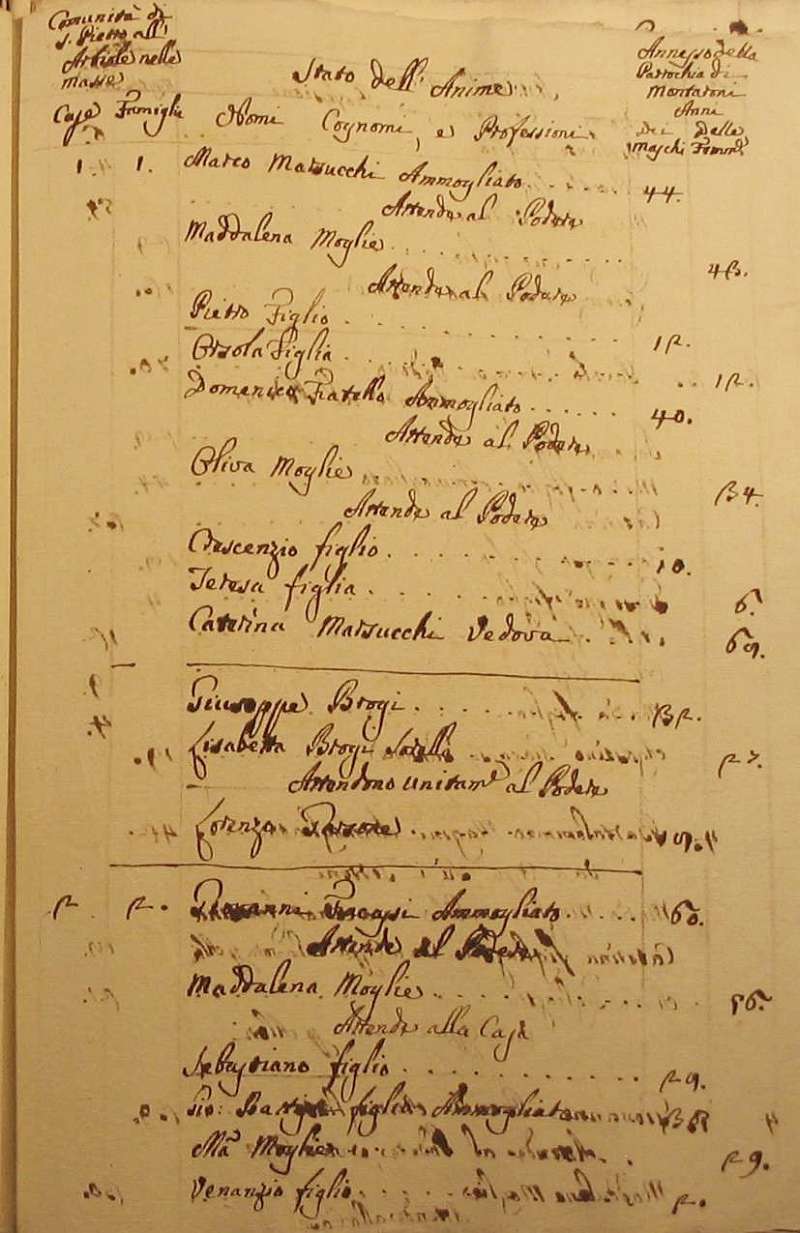 Comunità di
S. Pietro all'
Article nelle
masse
Annesso della
Parrochia di
Montaroni
Stato dell' Anime
Case Famiglie Nomi Cognomi, e Professioni
Anni
Dei Delle
Maschi Femine
1. 1. Marco Marsucchi Ammogliato 44.
Attende al Podere
Maddalena Moglie 43.
Attende al Podere
Pietro Figlio 12.
Orsola Figlia 12.
Domenico Fratello Ammogliato 40.
Attende al Podere
Oliva Moglie 34.
Attende al Podere
Crescenzio figlio 10.
Teresa figlia 6.
Caterina Marsucchi Vedova 69.
Giuseppe Brogi 32.
Lisabetta Brogi Sorella 27.
Attendono unitam.e al Podere
Lorenzo Garzone
2 2. Giovanni Fracassi Ammogliato 60.
Attende al Podere
Maddalena Moglie 56.
Attende alla Casa
Sebastiano figlio 29.
Gio: Batista figlio Ammogliato
Ma Moglie 29.
Venanzio figlio 2.